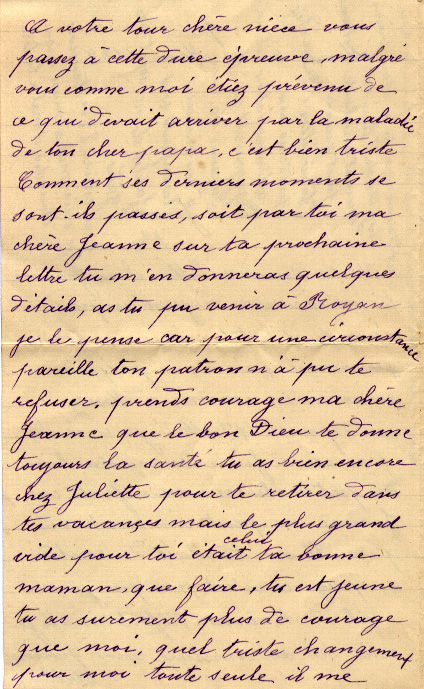 A votre tour chère nièce vous
passez à cette dure épreuve, malgré
vous comme moi étiez prévenu de
ce qui devait arriver par la maladie
de ton cher papa, c'est bien triste
Comment ses derniers moments se
sont-ils passés, soit par toi ma
chère Jeanne sur ta prochaine
lettre tu m'en donneras quelques
détails, as tu pu venir à Royan
je le pense car pour une circonstance
pareille ton patron n'à pu te
refuser, prends courage ma chère
Jeanne que le bon Dieu te donne
toujours la santé tu as bien encore
chez Juliette pour te retirer dans
tes vacances mais le plus grand
vide pour toi était celui ta bonne
maman, que faire, tu est jeune
tu as surement plus de courage
que moi, quel triste changement
pour moi toute seule il me